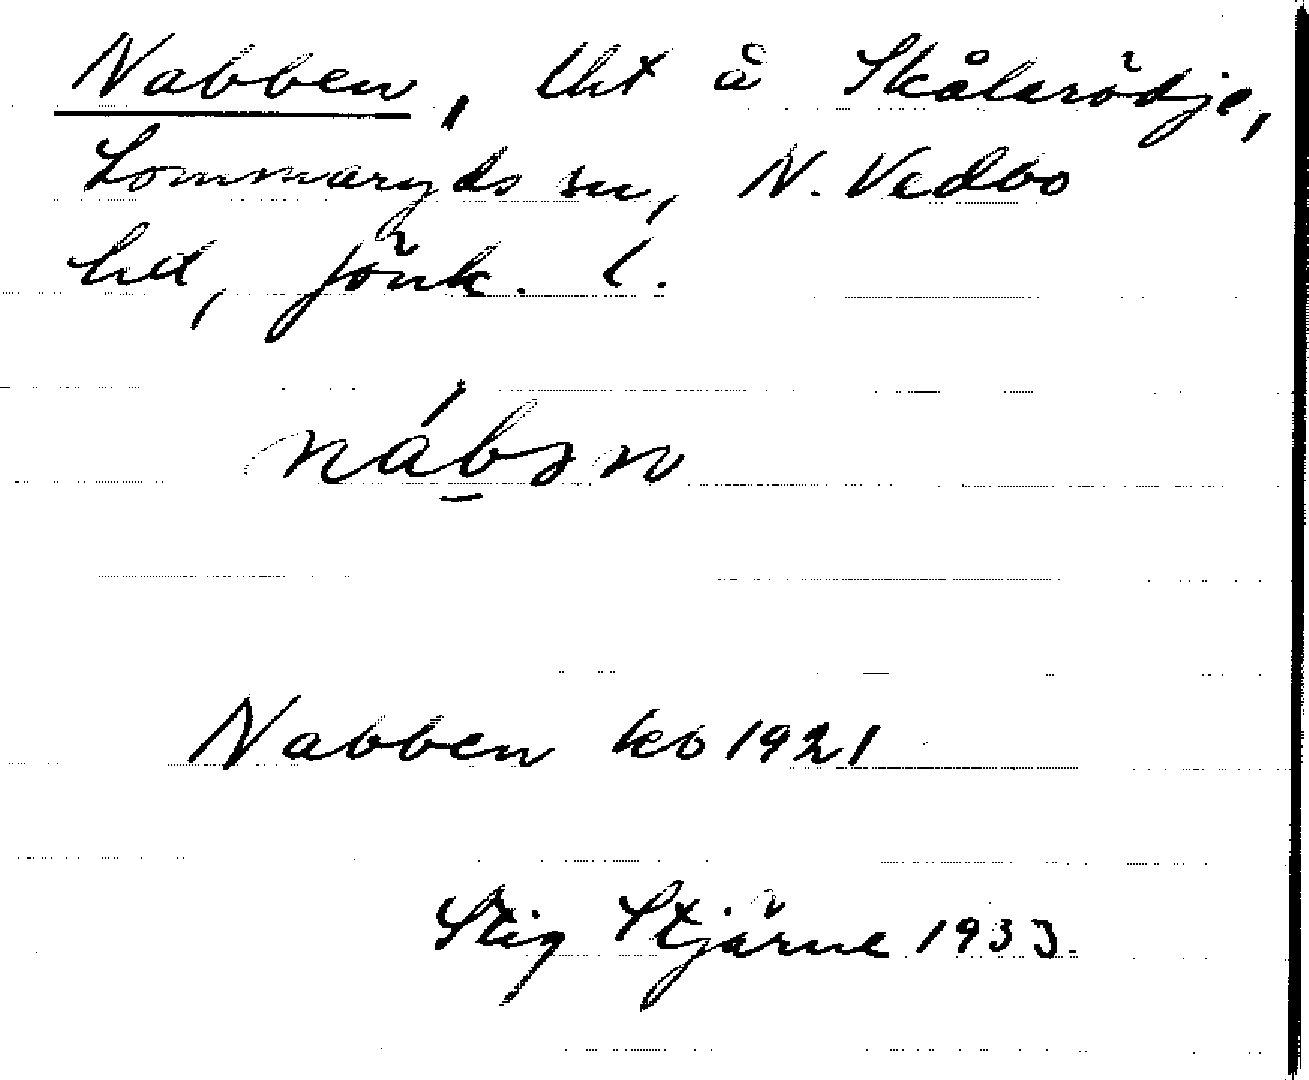 Nabben, lht å Skålarödje,
Lommaryds sn, N. Vedbo
hd, Jönk. l.
nábən
Nabben kb 1921
Stig Stjärne 1933.